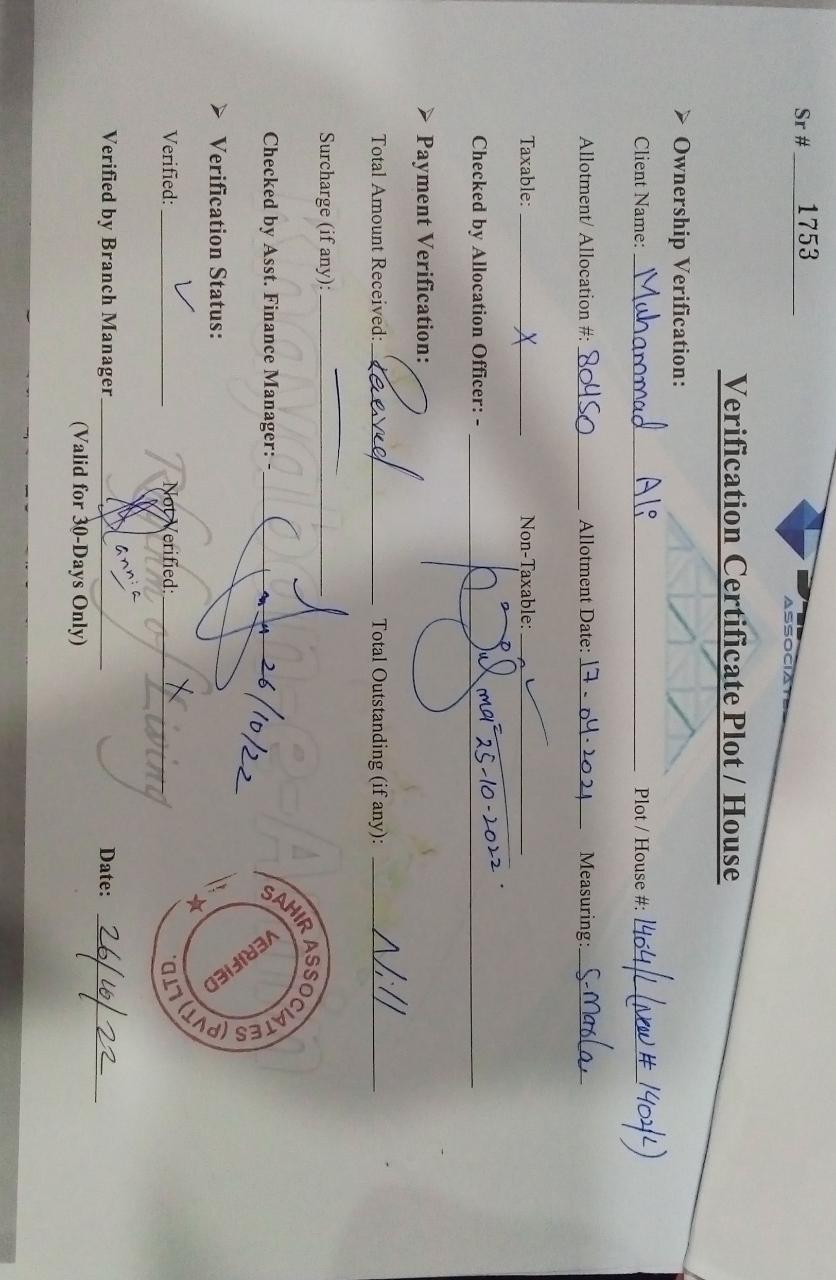 Sr # 1753
ASSOCIATE
Verification Certificate Plot / House
➤ Ownership Verification:
Client Name: Muhammad Ali Plot / House #: 1404/L (New # 1402/L)
Allotment/ Allocation #: 80450 Allotment Date: 17-04-2021 Measuring: 5-Marla
Taxable: X Non-Taxable: ✓
Checked by Allocation Officer: - 25-10-2022.
➤ Payment Verification:
Total Amount Received: Received Total Outstanding (if any): Nill
Surcharge (if any): —
Checked by Asst. Finance Manager: - 26/10/22
➤ Verification Status:
Verified: ✓ Not Verified: X
Verified by Branch Manager Date: 26/10/22
(Valid for 30-Days Only)
SAHIR ASSOCIATES (PVT) LTD.
VERIFIED